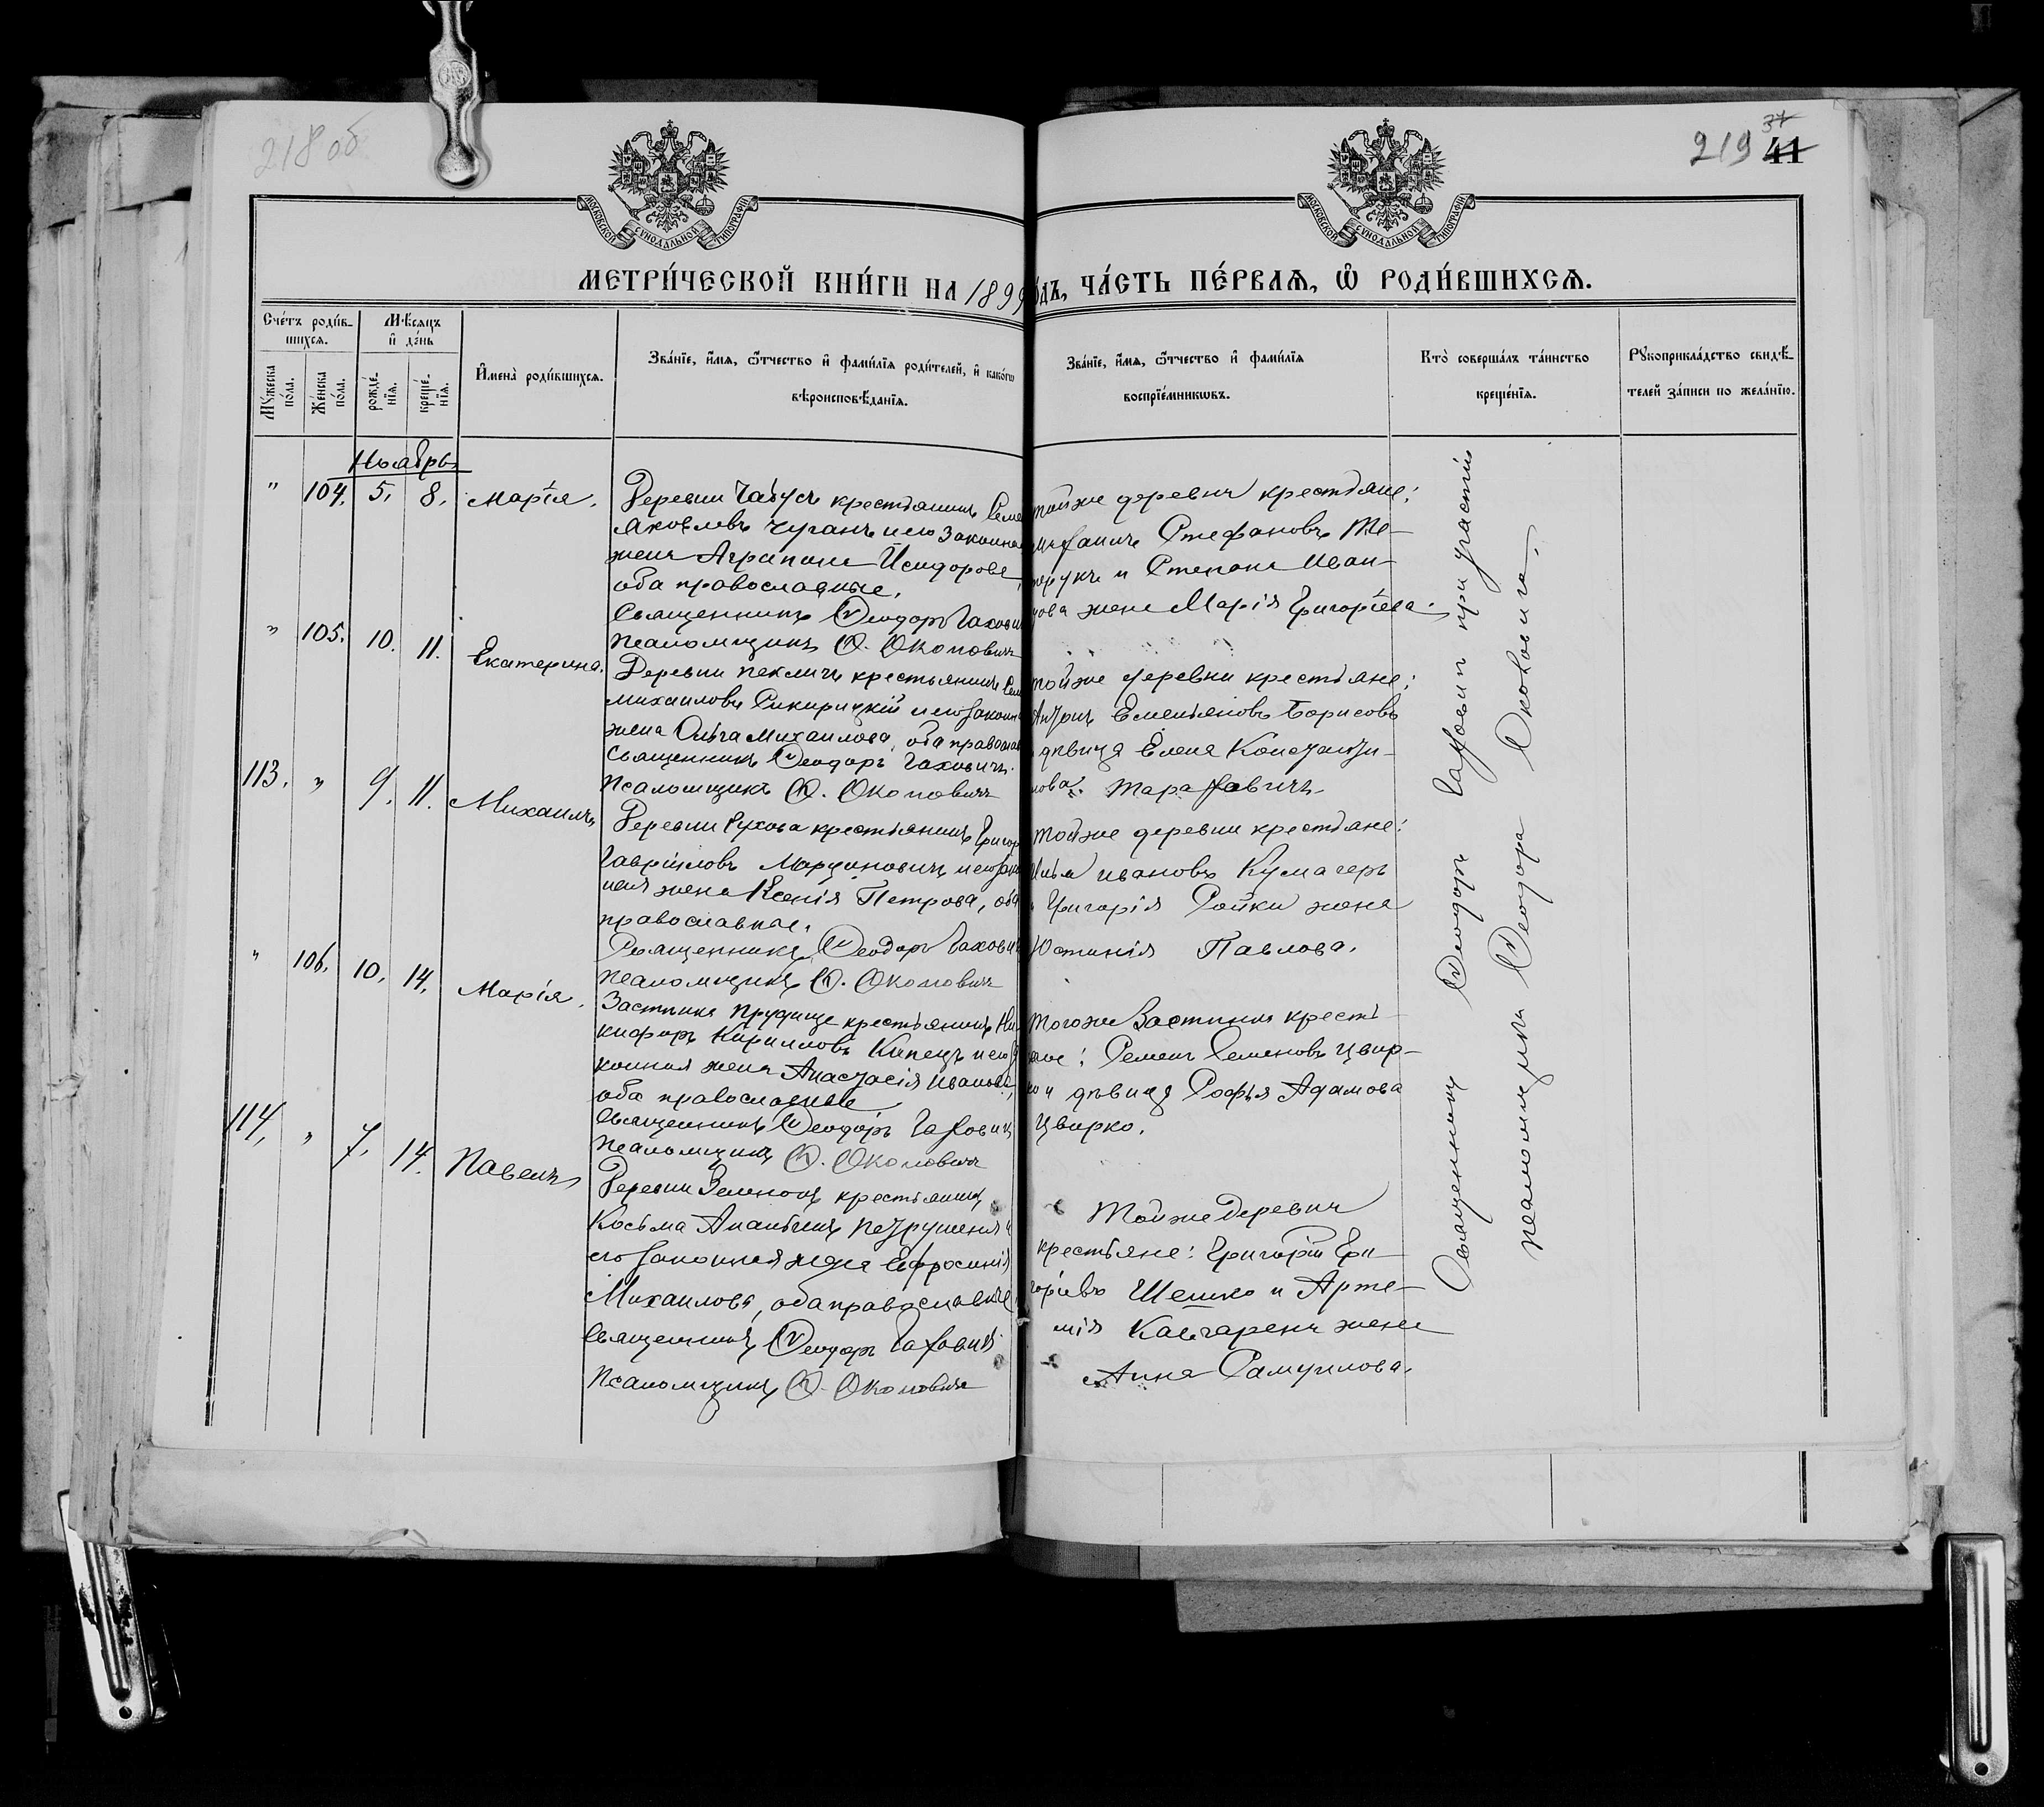 218 об
219
37
41
МОСКОВСКОЙ СѴНОДАЛЬНОЙ ТИПОГРАФІИ
МОСКОВСКОЙ СѴНОДАЛЬНОЙ ТИПОГРАФІИ
МЕТРИ́ЧЕСКОЙ КНИ́ГИ НА 1899 ГО́ДЪ, ЧА́СТЬ ПЕ́РВАѦ, Ѡ РОДИ́ВШИХСѦ.
Сче́тъ роди́в-
шихсѧ.
Мꙋ́жеска по́ла.
Же́нска по́ла.
Мѣ́сѧцъ и де́нь
рожде́-
нїѧ.
креще́-
нїѧ.
И҆мена̀ роди́вшихсѧ.
Зва́нїе, и҆́мѧ, ѻ҆́тчество и҆ фами́лїѧ роди́телей, и҆ како́гѡ
вѣроисповѣ́данїѧ.
Зва́нїе, и҆́мѧ, ѻ҆́тчество и҆ фами́лїѧ
воспрїе́мникѡвъ.
Кто̀ соверша́лъ та́инство
креще́нїѧ.
Рꙋкоприкла́дство свидѣ́-
телей за́писи по жела́нїю.
Ноябрь
" 104. 5. 8. Марія.
Деревни Чабусъ крестьянинъ Семе
Яковлевъ Чуганъ и его законна
жена Агрипина Исидорова,
оба православные.
Священникъ Ѳеодоръ Гахович
Псаломщикъ Ѳ. Околовичъ
тойже деревни крестьяне:
Стефановъ
и Степана Иван-
ова жена Марія Григоріева.
" 105. 10. 11. Екатерина.
Деревни Пекличи крестьянинъ Сем
Михайловъ Сикирицкій и его законн
жена Ольга Михаилова, оба православ
Священникъ Ѳеодоръ Гаховичъ
Псаломщикъ Ѳ. Околовичъ
тойже деревни крестьяне:
Емельяновъ Борисовъ
дѣвица Елена Константи-
нова Тарасевичъ
113. " 9. 11. Михаилъ
Деревни Рухова крестьянинъ Григор
Гавріиловъ Марциновичъ и его зако
ная жена Ксенія Петрова, оба
православные.
Священникъ Ѳеодоръ Гахович
Псаломщикъ Ѳ. Околовичъ
тойже деревни крестьяне:
Илья Ивановъ Кумагеръ
и Григорія Сойки жена
Юстинія Павлова.
" 106. 10. 14. Марія.
Застѣнка Прудище крестьянинъ Ни-
кифоръ Кирилловъ Кипецъ и его за
конная жена Анастасія Иванова,
оба православные
Священникъ Ѳеодоръ Гахович
Псаломщикъ Ѳ. Околовичъ
Тогоже Застѣнка кресть-
яне: Семенъ Семеновъ Цвир-
ко и дѣвица Софья Адамова
Цвирко.
114. " 7. 14. Павелъ
Деревни Зеленецъ крестьянинъ
Косьма Ананьинъ Петрушеня и
его законная жена Ефросинія
Михаилова, оба православные,
Священникъ Ѳеодоръ Гахович
Псаломщикъ Ѳ. Околовичъ
Тойже деревни
крестьяне: Григорій Гри-
горіевъ Шешко и Арте-
мія жена
Анна Самуилова.
Священникъ Ѳеодоръ Гаховичъ при участіи
псаломщика Ѳеодора Околовича.